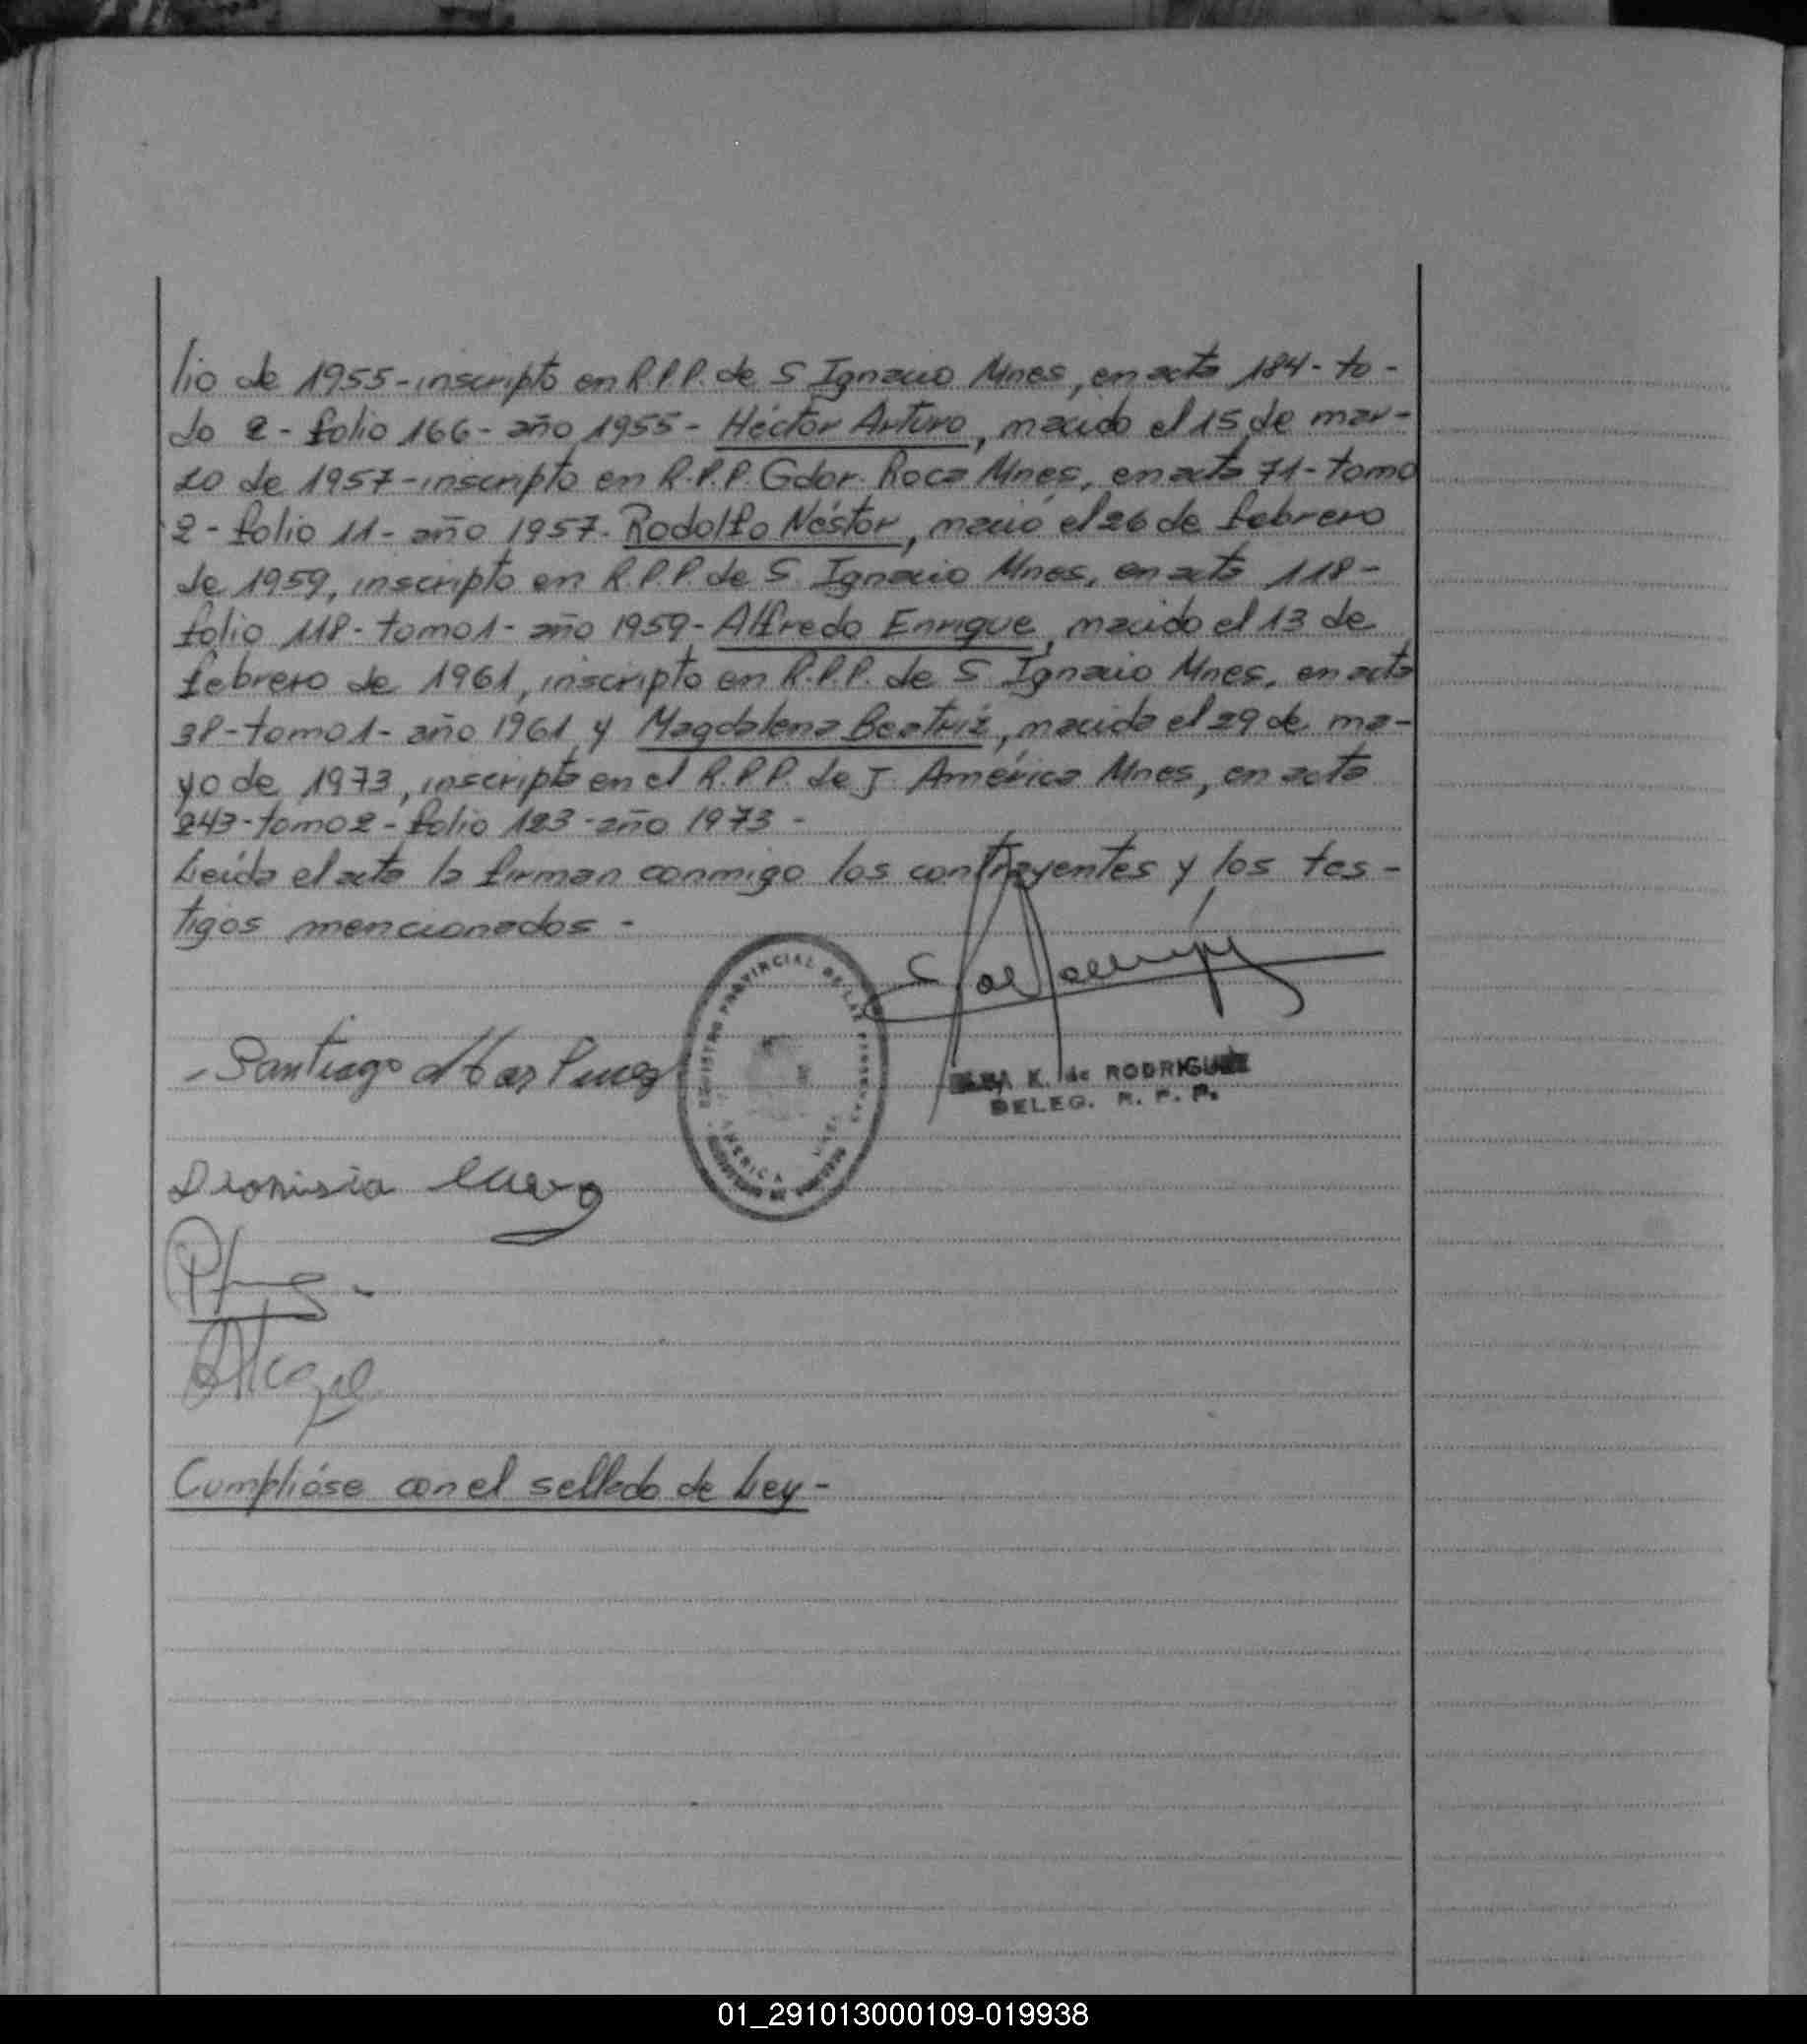 lio de 1955-inscripto en R.P.P. de S Ignacio Mnes, en acta 184-to-
do 2-folio 166-año 1955-Héctor Arturo, nacido el 15 de mar-
zo de 1957-inscripto en R.P.P. Gdor. Roca Mnes, en acta 71-tomo
2-folio 11-año 1957-Rodolfo Néstor, nació el 26 de febrero
de 1959, inscripto en R.P.P. de S. Ignacio Mnes, en acta 118-
folio 118-tomo 1-año 1959-Alfredo Enrique, nacido el 13 de
febrero de 1961, inscripto en R.P.P. de S Ignacio Mnes, en acta
38-tomo 1-año 1961 y Magdalena Beatriz, nacida el 29 de ma-
yo de 1973, inscripta en el R.P.P. de J. América Mnes, en acta
243-tomo 2-folio 123-año 1973-
Leída el acta la firman conmigo los contrayentes y los tes-
tigos mencionados-
REGISTRO PROVINCIAL DE LAS PERSONAS
AMERICA
Santiago Martinez
K. de RODRIGUEZ
DELEG. R. P. P.
Dionisia
Cumplióse con el sellado de Ley-
01_291013000109-019938